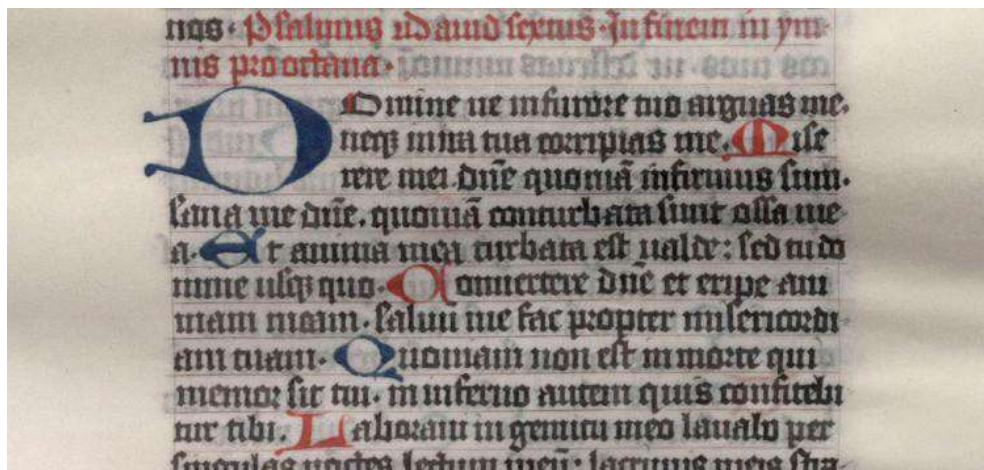 nos. Psalmus David sextus. In finem in ym
nis pro octaua.
Domine ne in furore tuo arguas me.
neqꝫ in ira tua corripias me. Mise
rere mei dn̄e quoniā infirmus sum.
sana me dn̄e. quoniā conturbata sunt ossa me
a. Et anima mea turbata est ualde: sed tu do
mine usqꝫ quo. Conuertere dn̄e et eripe ani
mam meam. saluū me fac propter misericordi
am tuam. Quoniam non est in morte qui
memor sit tui. in inferno autem quis confitebi
tur tibi. Laboraui in gemitu meo lauabo per
singulas noctes lectum meū: lacrimis meis stra